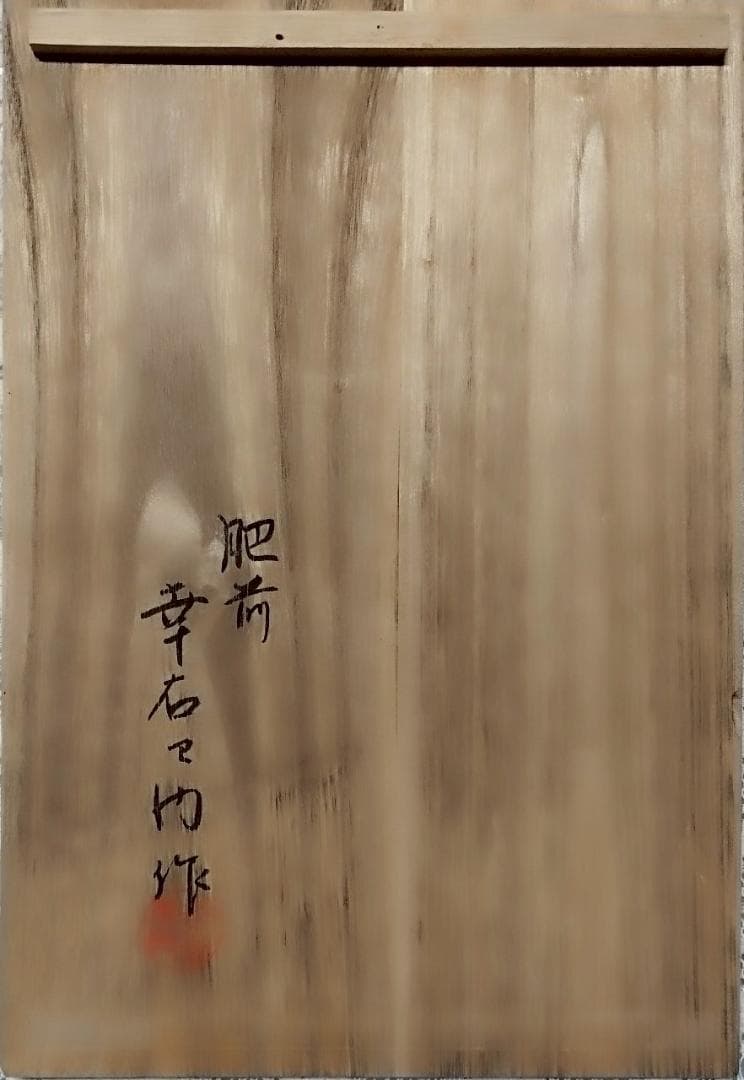 肥前
幸右ヱ門作